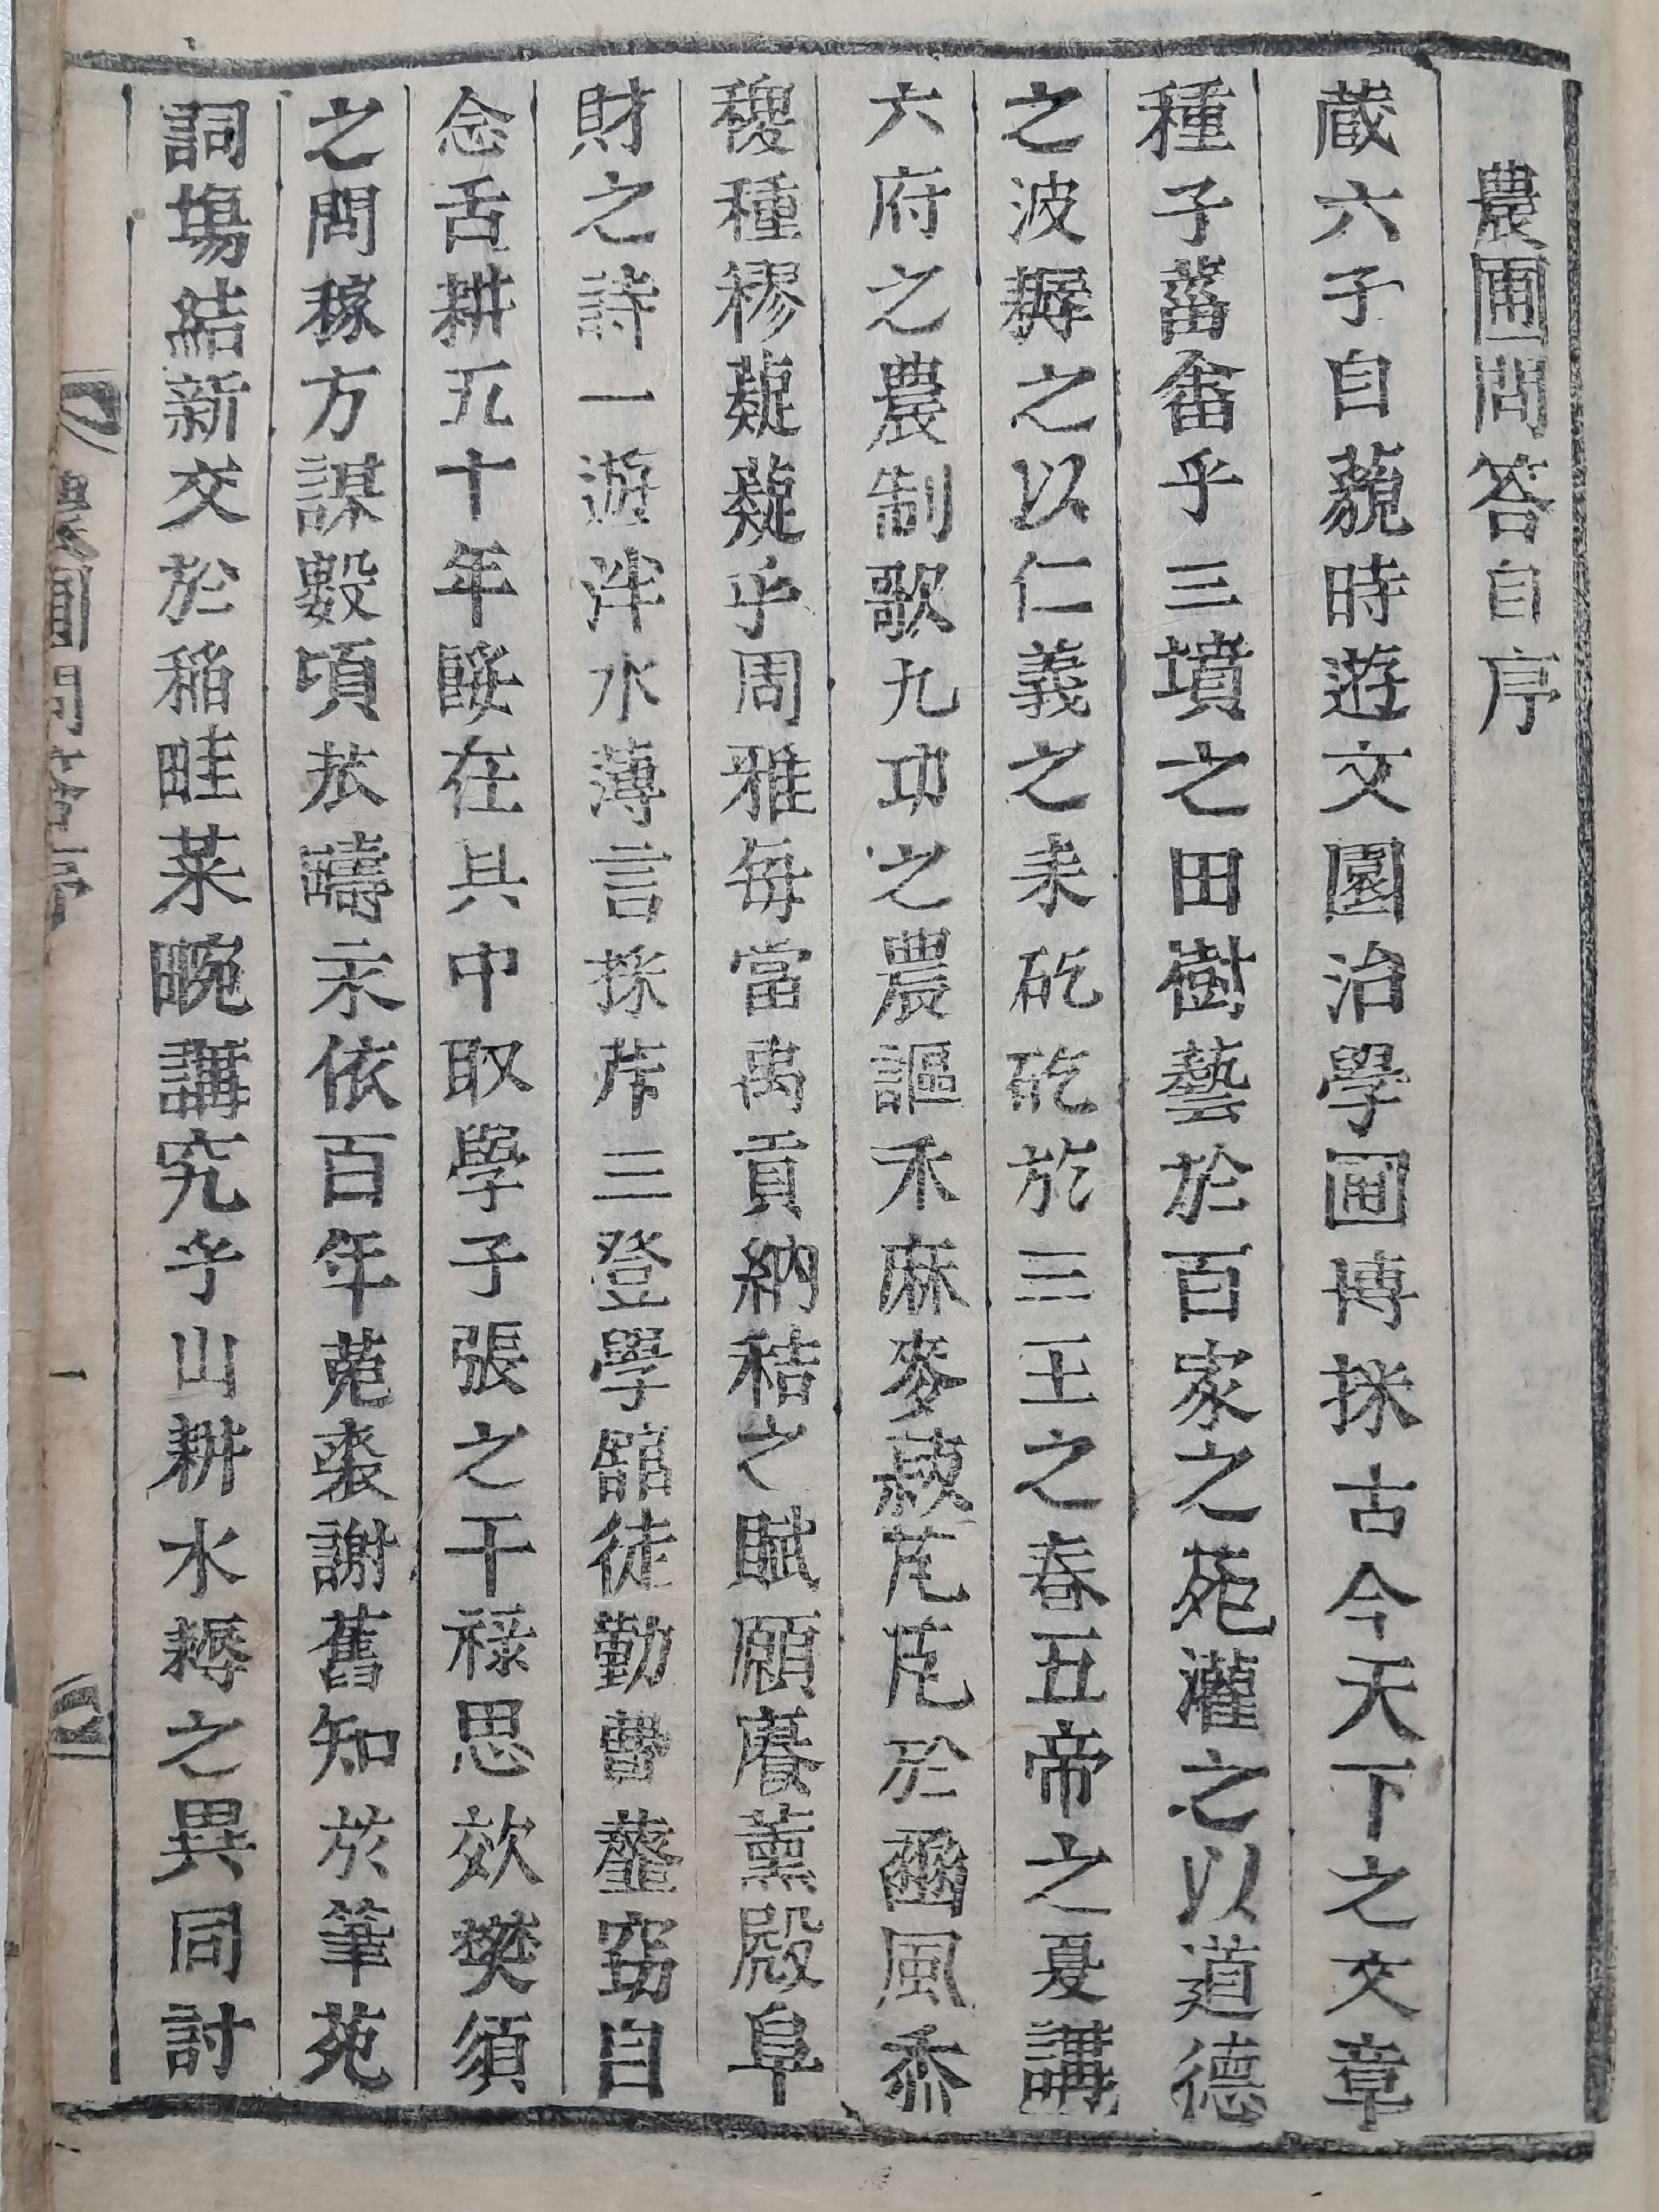 農圃問答自序
蔵六子自藐時遊文園治學圃博採古今天下之文章
種子菑畬乎三墳之田樹藝於百家之苑灌之以道德
之波耨之以仁義之耒矻矻於三王之春五帝之夏講
六府之農制歌九功之農謳禾麻麥菽芃芃於豳風黍
稷種穋薿薿乎周雅每當禹貢納秸之賦願賡薰殿阜
財之詩一遊泮水薄言採芹三登學館徒勤薺鹽竊自
念舌耕五十年餒在其中取學子張之干禄思效樊須
之問稼方謀數頃於疇未依百年菟裘謝舊知於筆苑
詞塲結新交於稲畦菜畹講究乎山耕水耨之異同討
農圃問答序
一